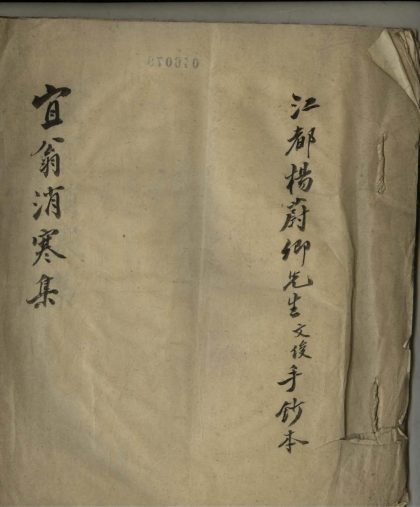 江都楊蔚卿先生文俊手鈔本
宜翁消寒集